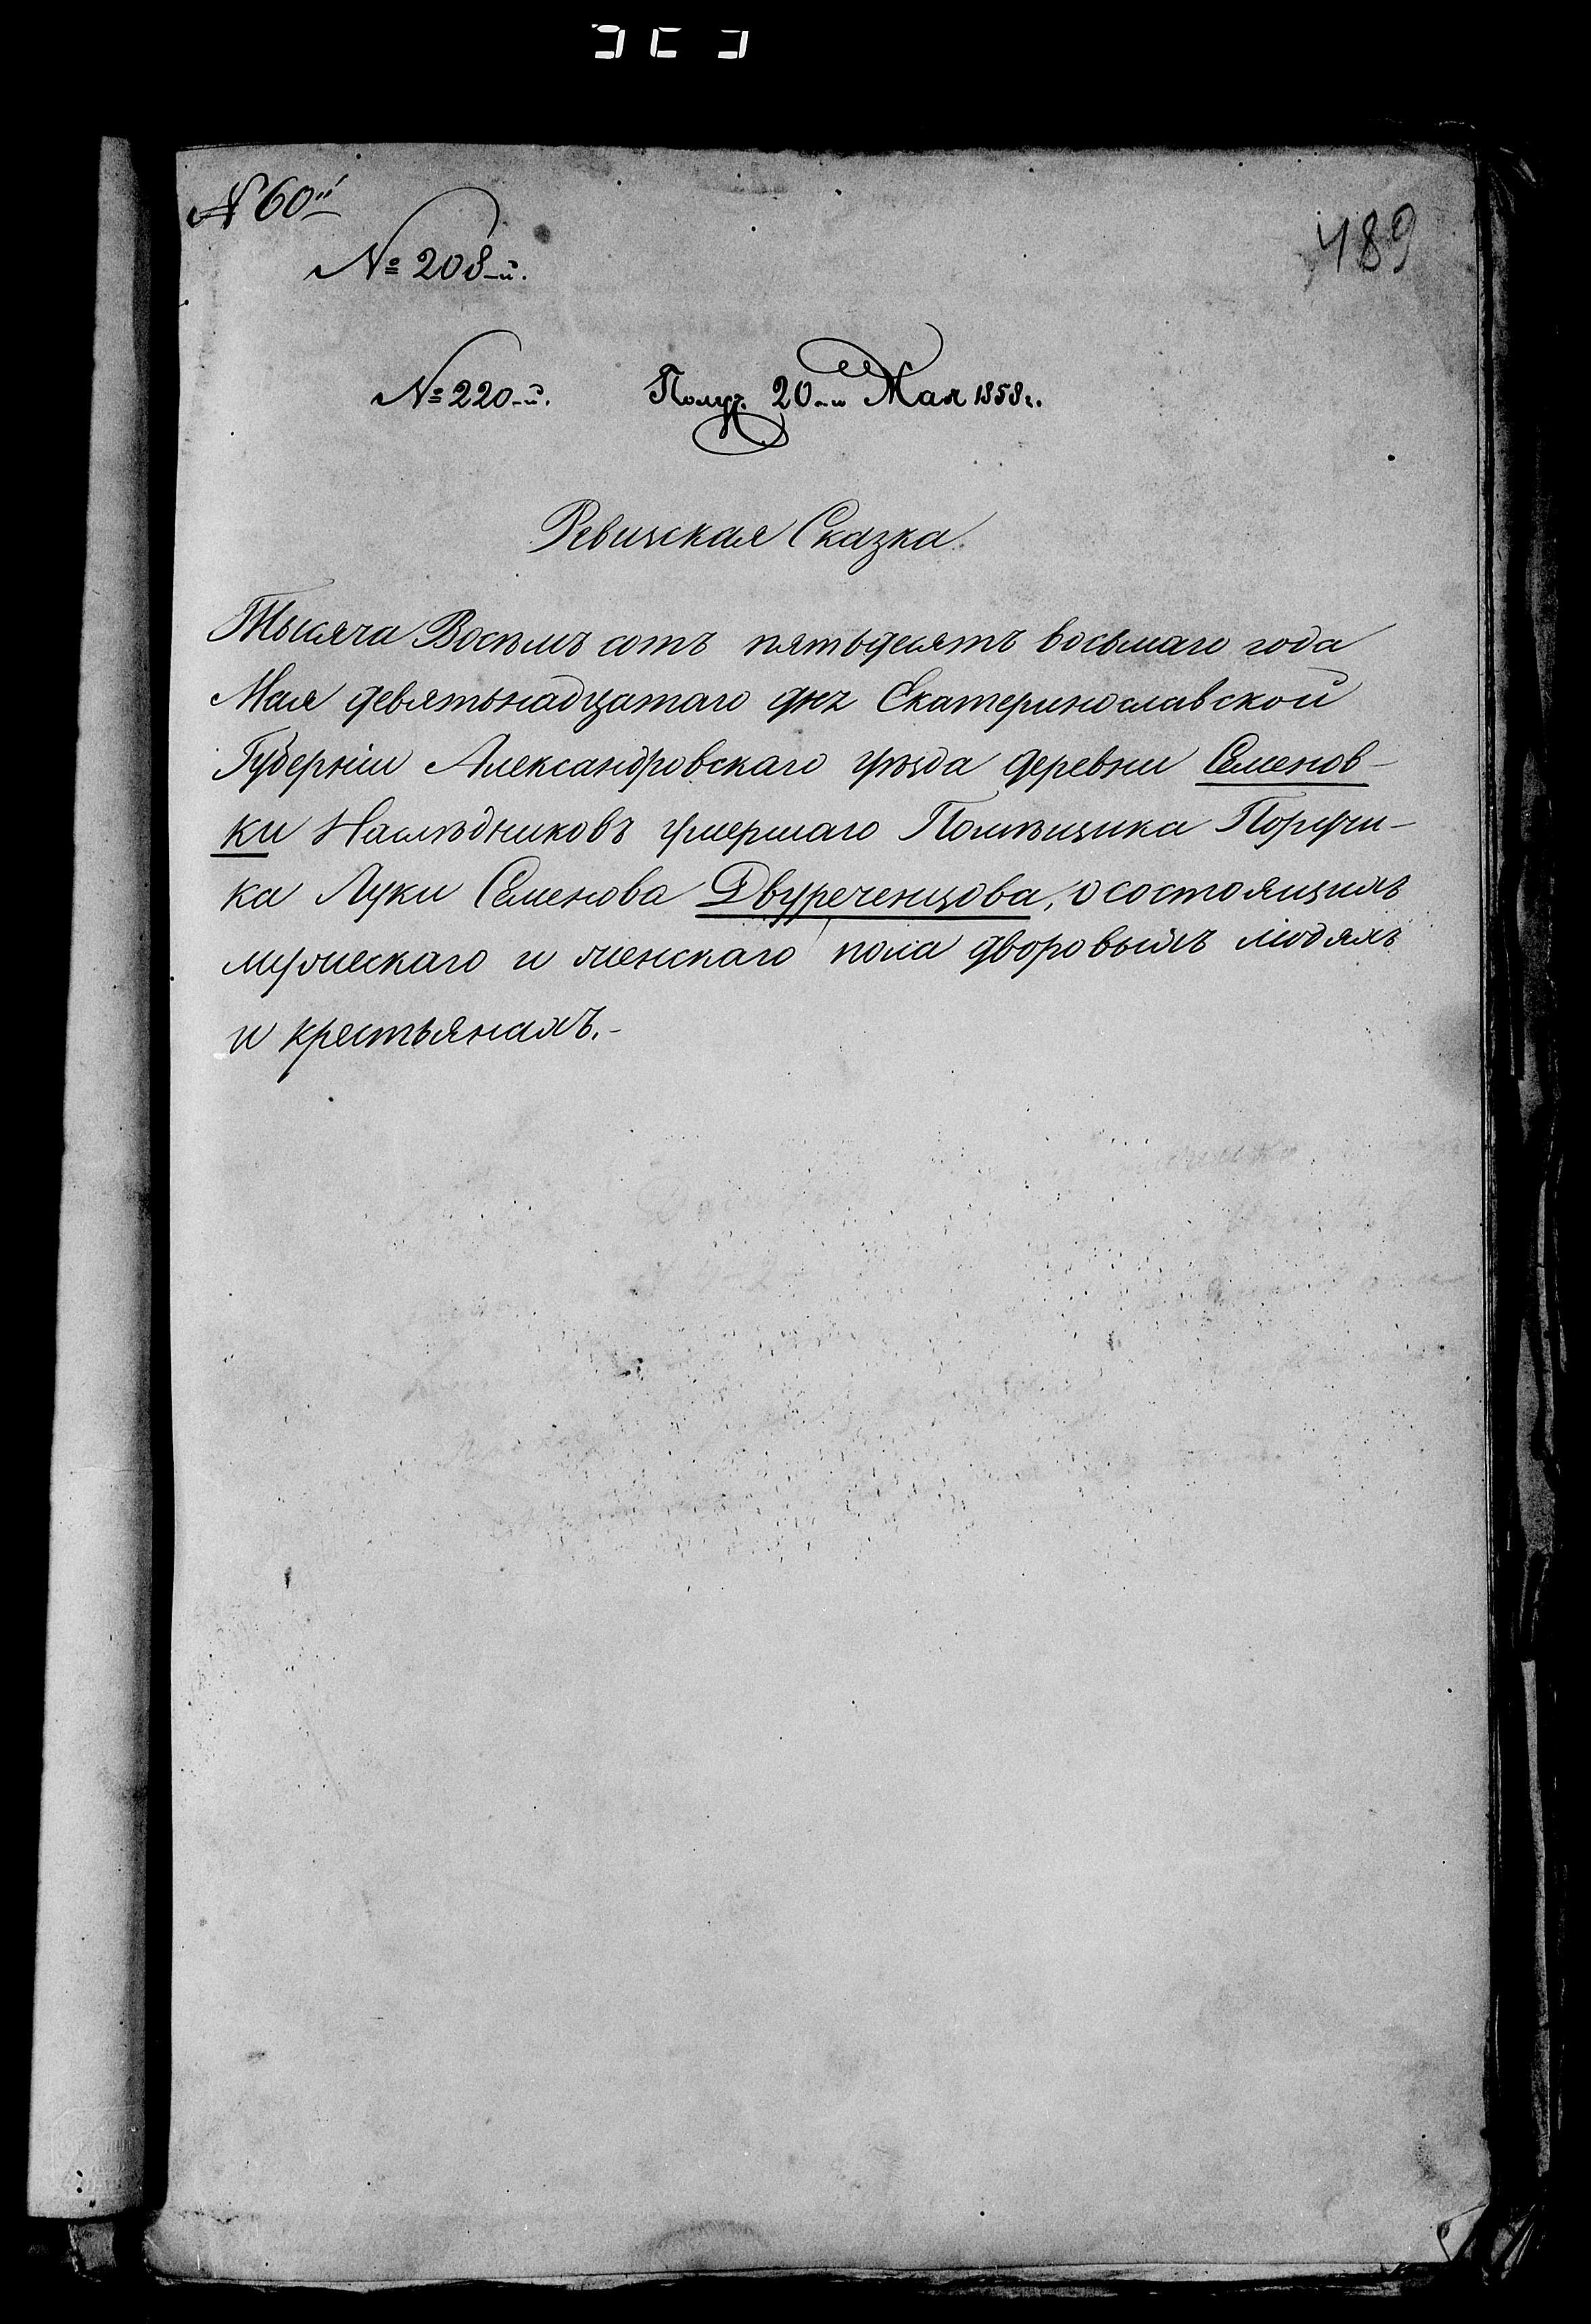 № 60й
489
№ 208-й.
№ 220-й. Получ. 20-го Мая 1858 г.
Ревизская Сказка.
Тысяча Восемь сотъ пятьдесятъ восьмаго года
Мая девятьнадцатаго дня Екатеринославской
Губерніи Александровскаго уѣзда деревни Семенов-
ки Наслѣдниковъ умершаго Помѣщика Поручи-
ка Луки Семенова Двуреченцова, о состоящихъ
мужескаго и женскаго пола дворовыхъ людяхъ
и крестьянахъ.-